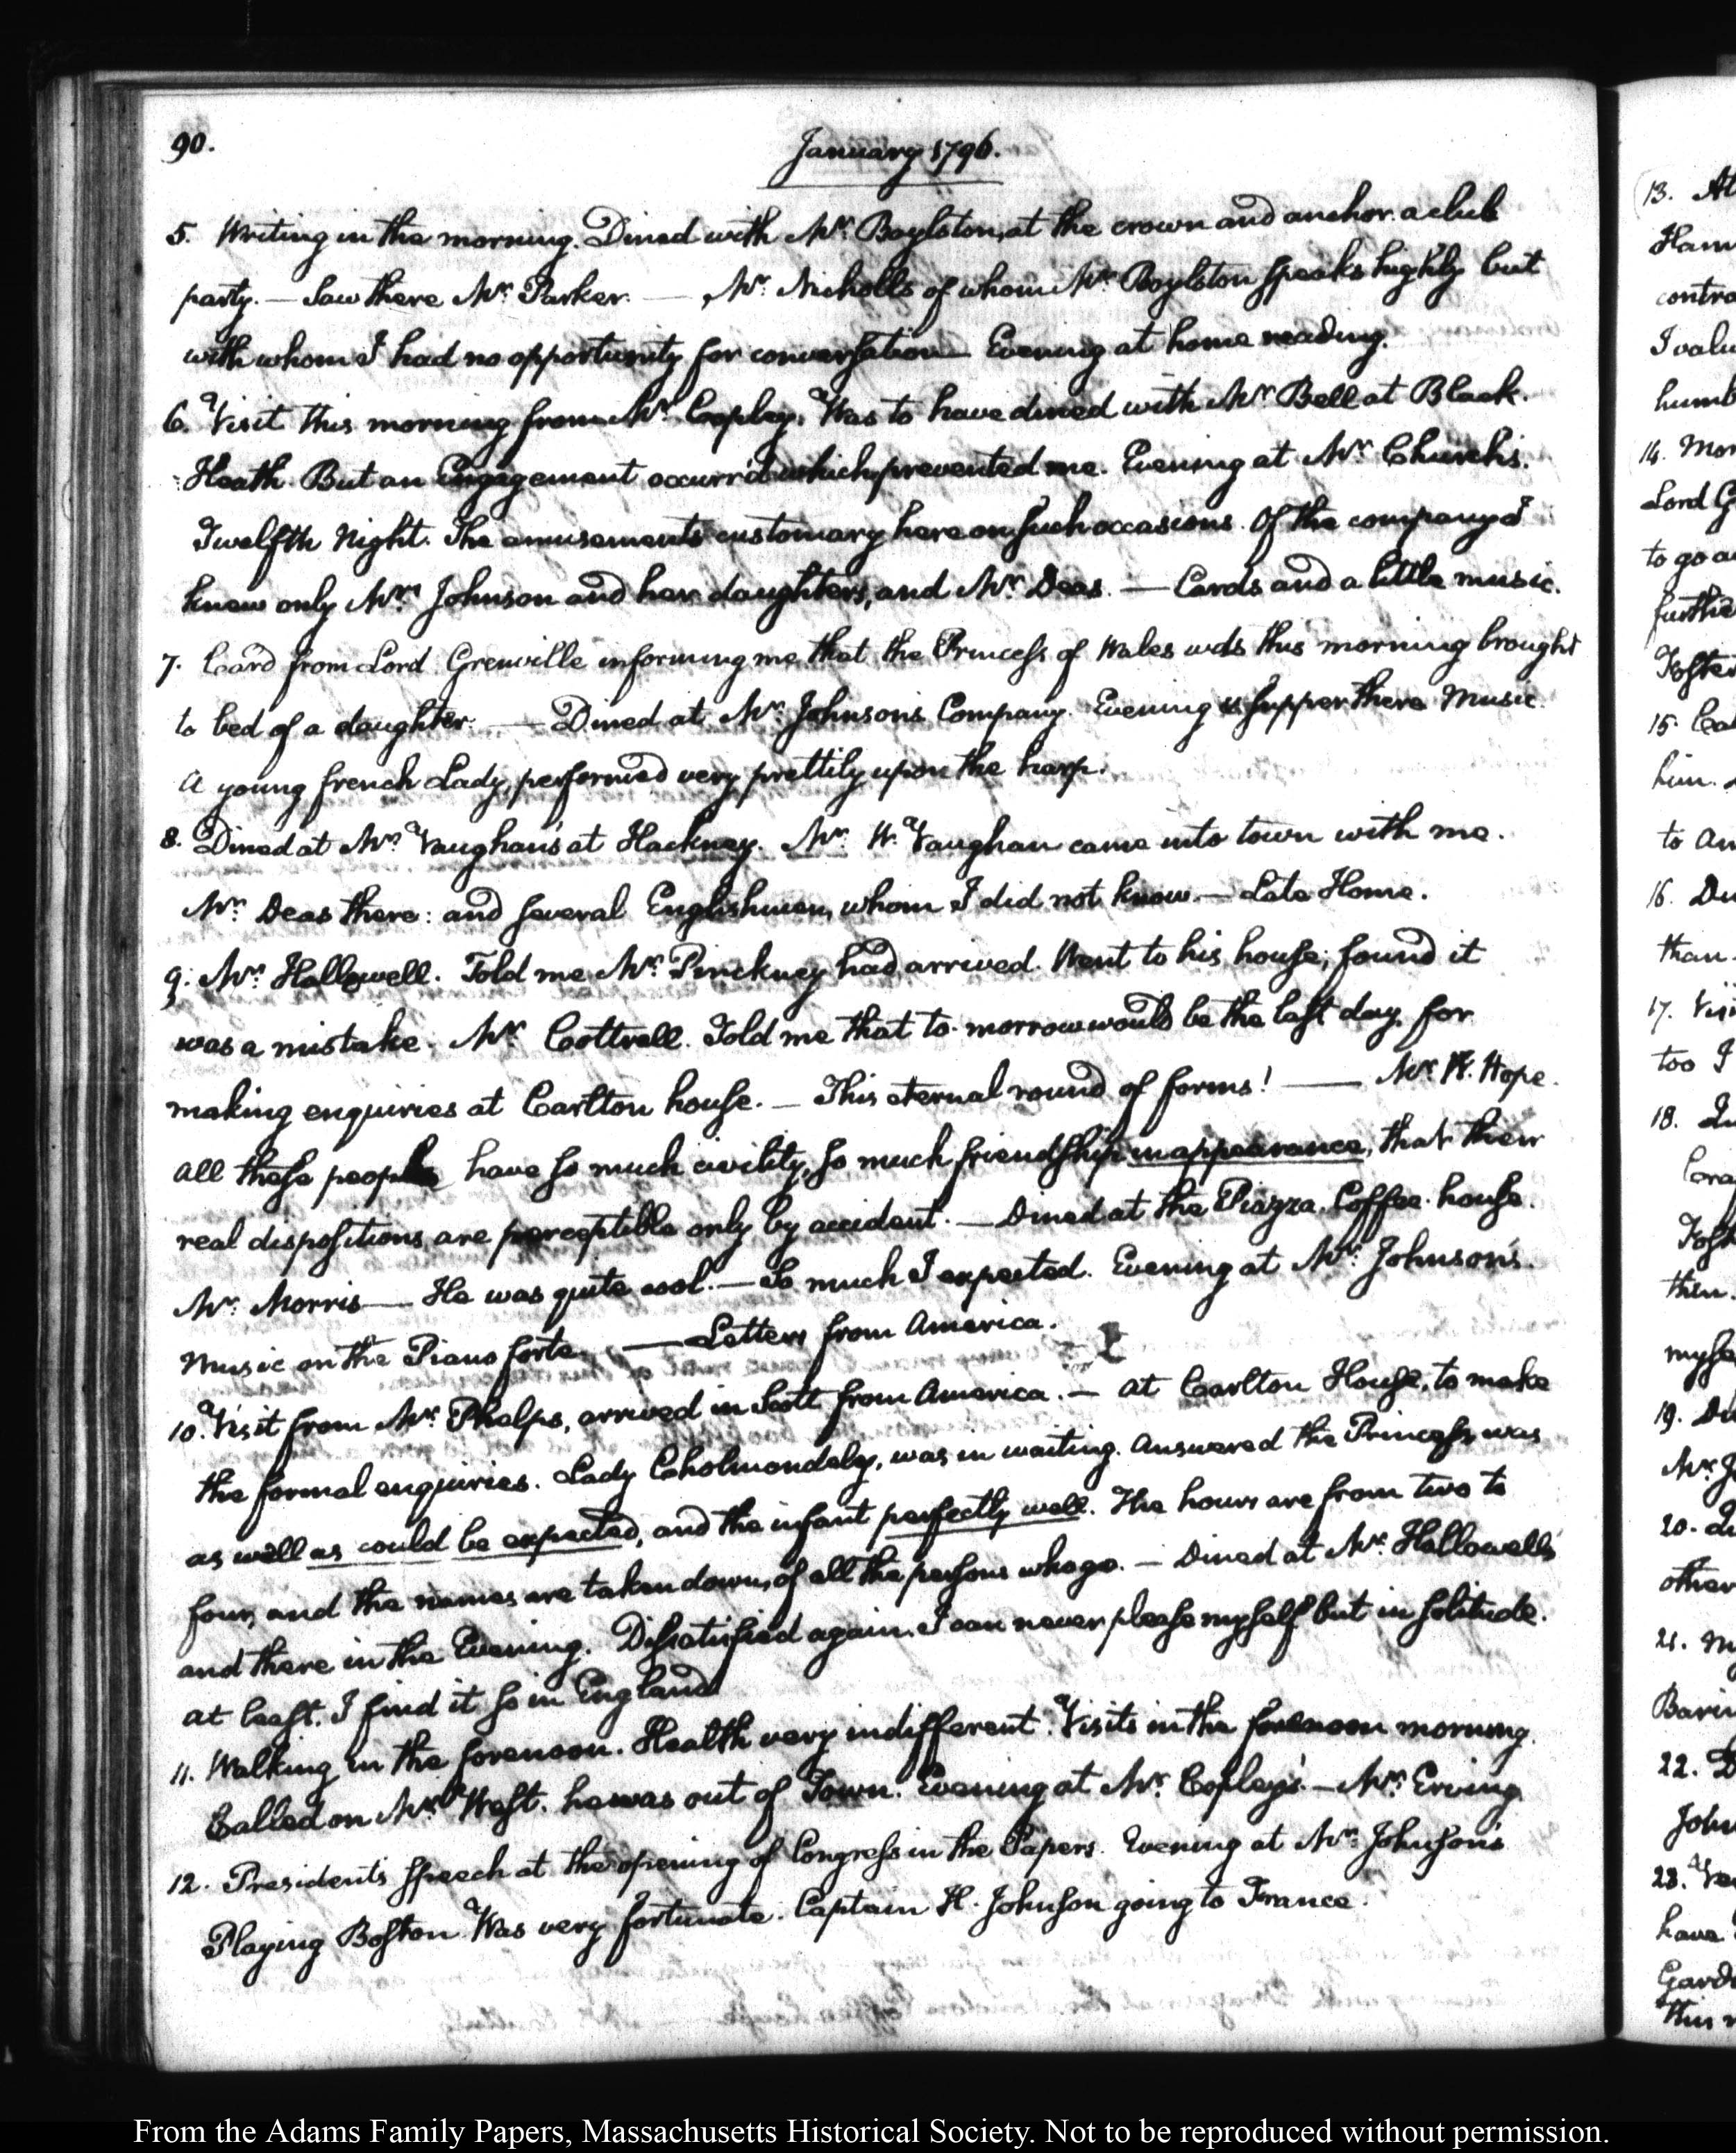 90.
January 1796.
5. Writing in the morning. Dined with Mr. Boylston, at the crown and anchor. a club
party. — Saw there Mr. Parker. — Mr. Nicholls of whom Mr. Boylston speaks highly but
with whom I had no opportunity for conversation — Evening at home reading.
6. Visit this morning from Mr. Copley. Was to have dined with Mr. Bell at Black.
Heath. But an Engagement occurr'd which prevented me. Evening at Mr. Church's.
Twelfth Night. The amusements customary here on such occasions. Of the company I
knew only Mrs. Johnson and her daughters, and Mr. Deas. — Cards and a little music.
7. Card from Lord Grenville informing me that the Princess of Wales was this morning brought
to bed of a daughter. — Dined at Mr. Johnson's Company. Evening & supper there Music.
A young french Lady, performed very prettily upon the harp.
8. Dined at Mr. Vaughan's at Hackney. Mr. W. Vaughan came into town with me.
Mr. Deas there: and several Englishmen, whom I did not know. — Late Home.
9. Mr. Hallowell. Told me Mr. Pinckney had arrived. Went to his house; found it
was a mistake. Mr. Cottrell. Told me that to-morrow would be the last day for
making enquiries at Carlton house. — This eternal round of forms! — Mr. H. Hope.
All these people have so much civility, so much friendship in appearance, that their
real dispositions are perceptible only by accident. — Dined at the Piazza. Coffee-house.
Mr. Morris — He was quite cool. — So much I expected. Evening at Mr. Johnson's.
Music on the Piano forte. — Letters from America.
10. Visit from Mr. Phelps, arrived in Scott from America. — At Carlton House, to make
the formal enquiries. Lady Choholmondely, was in waiting. Answered the Princess was
as well as could be expected, and the infant perfectly well. The hours are from two to
four, and the names are taken down, of all the persons who go. — Dined at Mr. Hallowell's
and there in the Evening. Dissatisfied again. I can never please myself but in solitude.
at least. I find it so in England
11. Walking in the forenoon. Health very indifferent. Visits in the forenoon morning.
Called on Mr. West. he was out of Town. Evening at Mr. Copley's. — Mr. Erving.
12. Presidents speech at the opening of Congress in the Papers. Evening at Mr. Johnson's
Playing Boston. Was very fortunate. Captain H. Johnson going to France.
13. At
14. Mor
Lord G
to go a
15. Ca
him.
to an
16. Di
than
17. Vis
too I
18.
then.
19. Di
Mr. J
20.
other
21. M
Bari
22. D
John
23. Ve
have
Gard
this
From the Adams Family Papers, Massachusetts Historical Society. Not to be reproduced without permission.